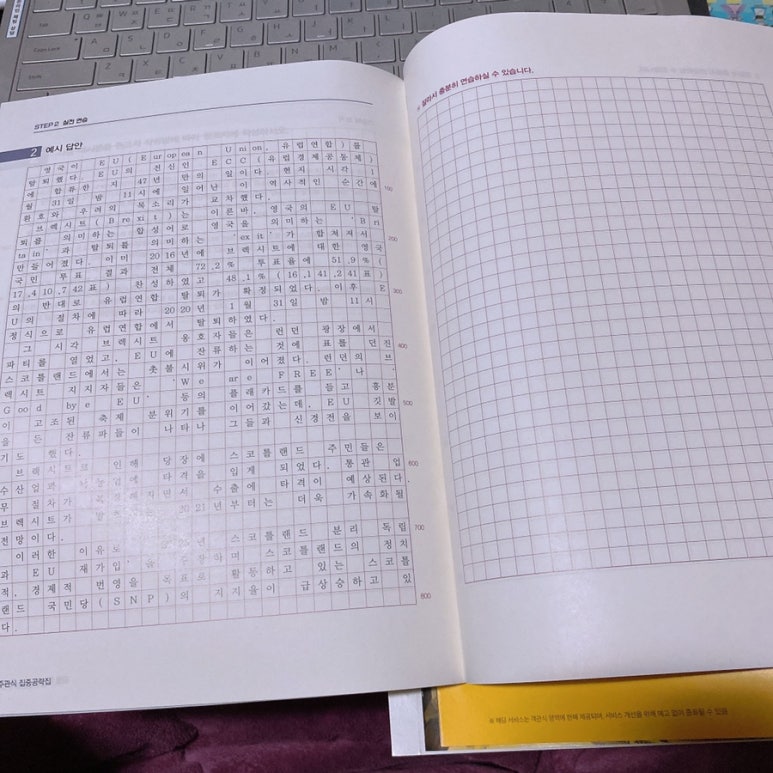 Caps Lock
Shift
STEP 2 실전 연습
2 예시 답안
영국이 EU(European Union, 유럽연합)를
탈퇴했다. EU의 전신인 ECC(유럽경제공동체)
에 합류한 지 47년 만의 일이다. 현지 시각 1
월 31일 밤 11시에 일어난 이 역사적인 순간에 100
환호와 우려의 목소리가 교차했다.
브렉시트(Brexit)는 이른바, 영국의 EU 탈
퇴를 의미하는 합성어로 영국을 의미하는 'Bri
tain'과 탈퇴를 의미하는 'exit'가 합쳐져서
만들어졌다. 이미 2016년에 브렉시트에 대한 영국 200
국민 투표 결과 전체 72.2% 투표율에 51.9%(
17,410,742표) 찬성하였고 48.1%(16,141,241표)
의 반대로 유럽연합 탈퇴가 확정되었다. 이후 E
U의 절차에 따라 2020년 1월 31일 밤 11시 300
정식으로 유럽연합에서 탈퇴하였다.
그 시각 브렉시트 옹호자들은 런던 광장에서
파티를 열었고, EU에 잔류하는 것에 표를 던진
스코틀랜드에서는 촛불시위가 이어졌다. 런던의 브 400
렉시트 지지자들은 'We are FREE'나,
'Good bye EU' 등의 플래카드를 들고 흥분
이 고조된 축제 분위기를 이어갔는데, EU 깃발
을 든 잔류파들이 나타나 그들과 신경전을 보이 500
기도 했다.
브렉시트로 인해 당장에 스코틀랜드 주민들은
수산업과 타격을 입게 되었다. 통관 업 600
무 절차가 복잡해지면서 수출에 타격이 예상된다.
브렉시트가 2021년부터는 더욱 가속화될
전망이다.
이러한 이유로 스코틀랜드 분리 독립
과 EU 재가입을 주장하며 스코틀랜드의 정치 700
적, 경제적 번영을 목표로 활동하고 있는 스코틀
랜드 국민당(SNP)의 지지율이 급상승하고 있
다. 800
주관식 집중공략집
잘라서 충분히 연습하실 수 있습니다.
※ 해당 서비스는 객관식 영역에 한해 제공되며, 서비스 개선을 위해 예고 없이 종료될 수 있음